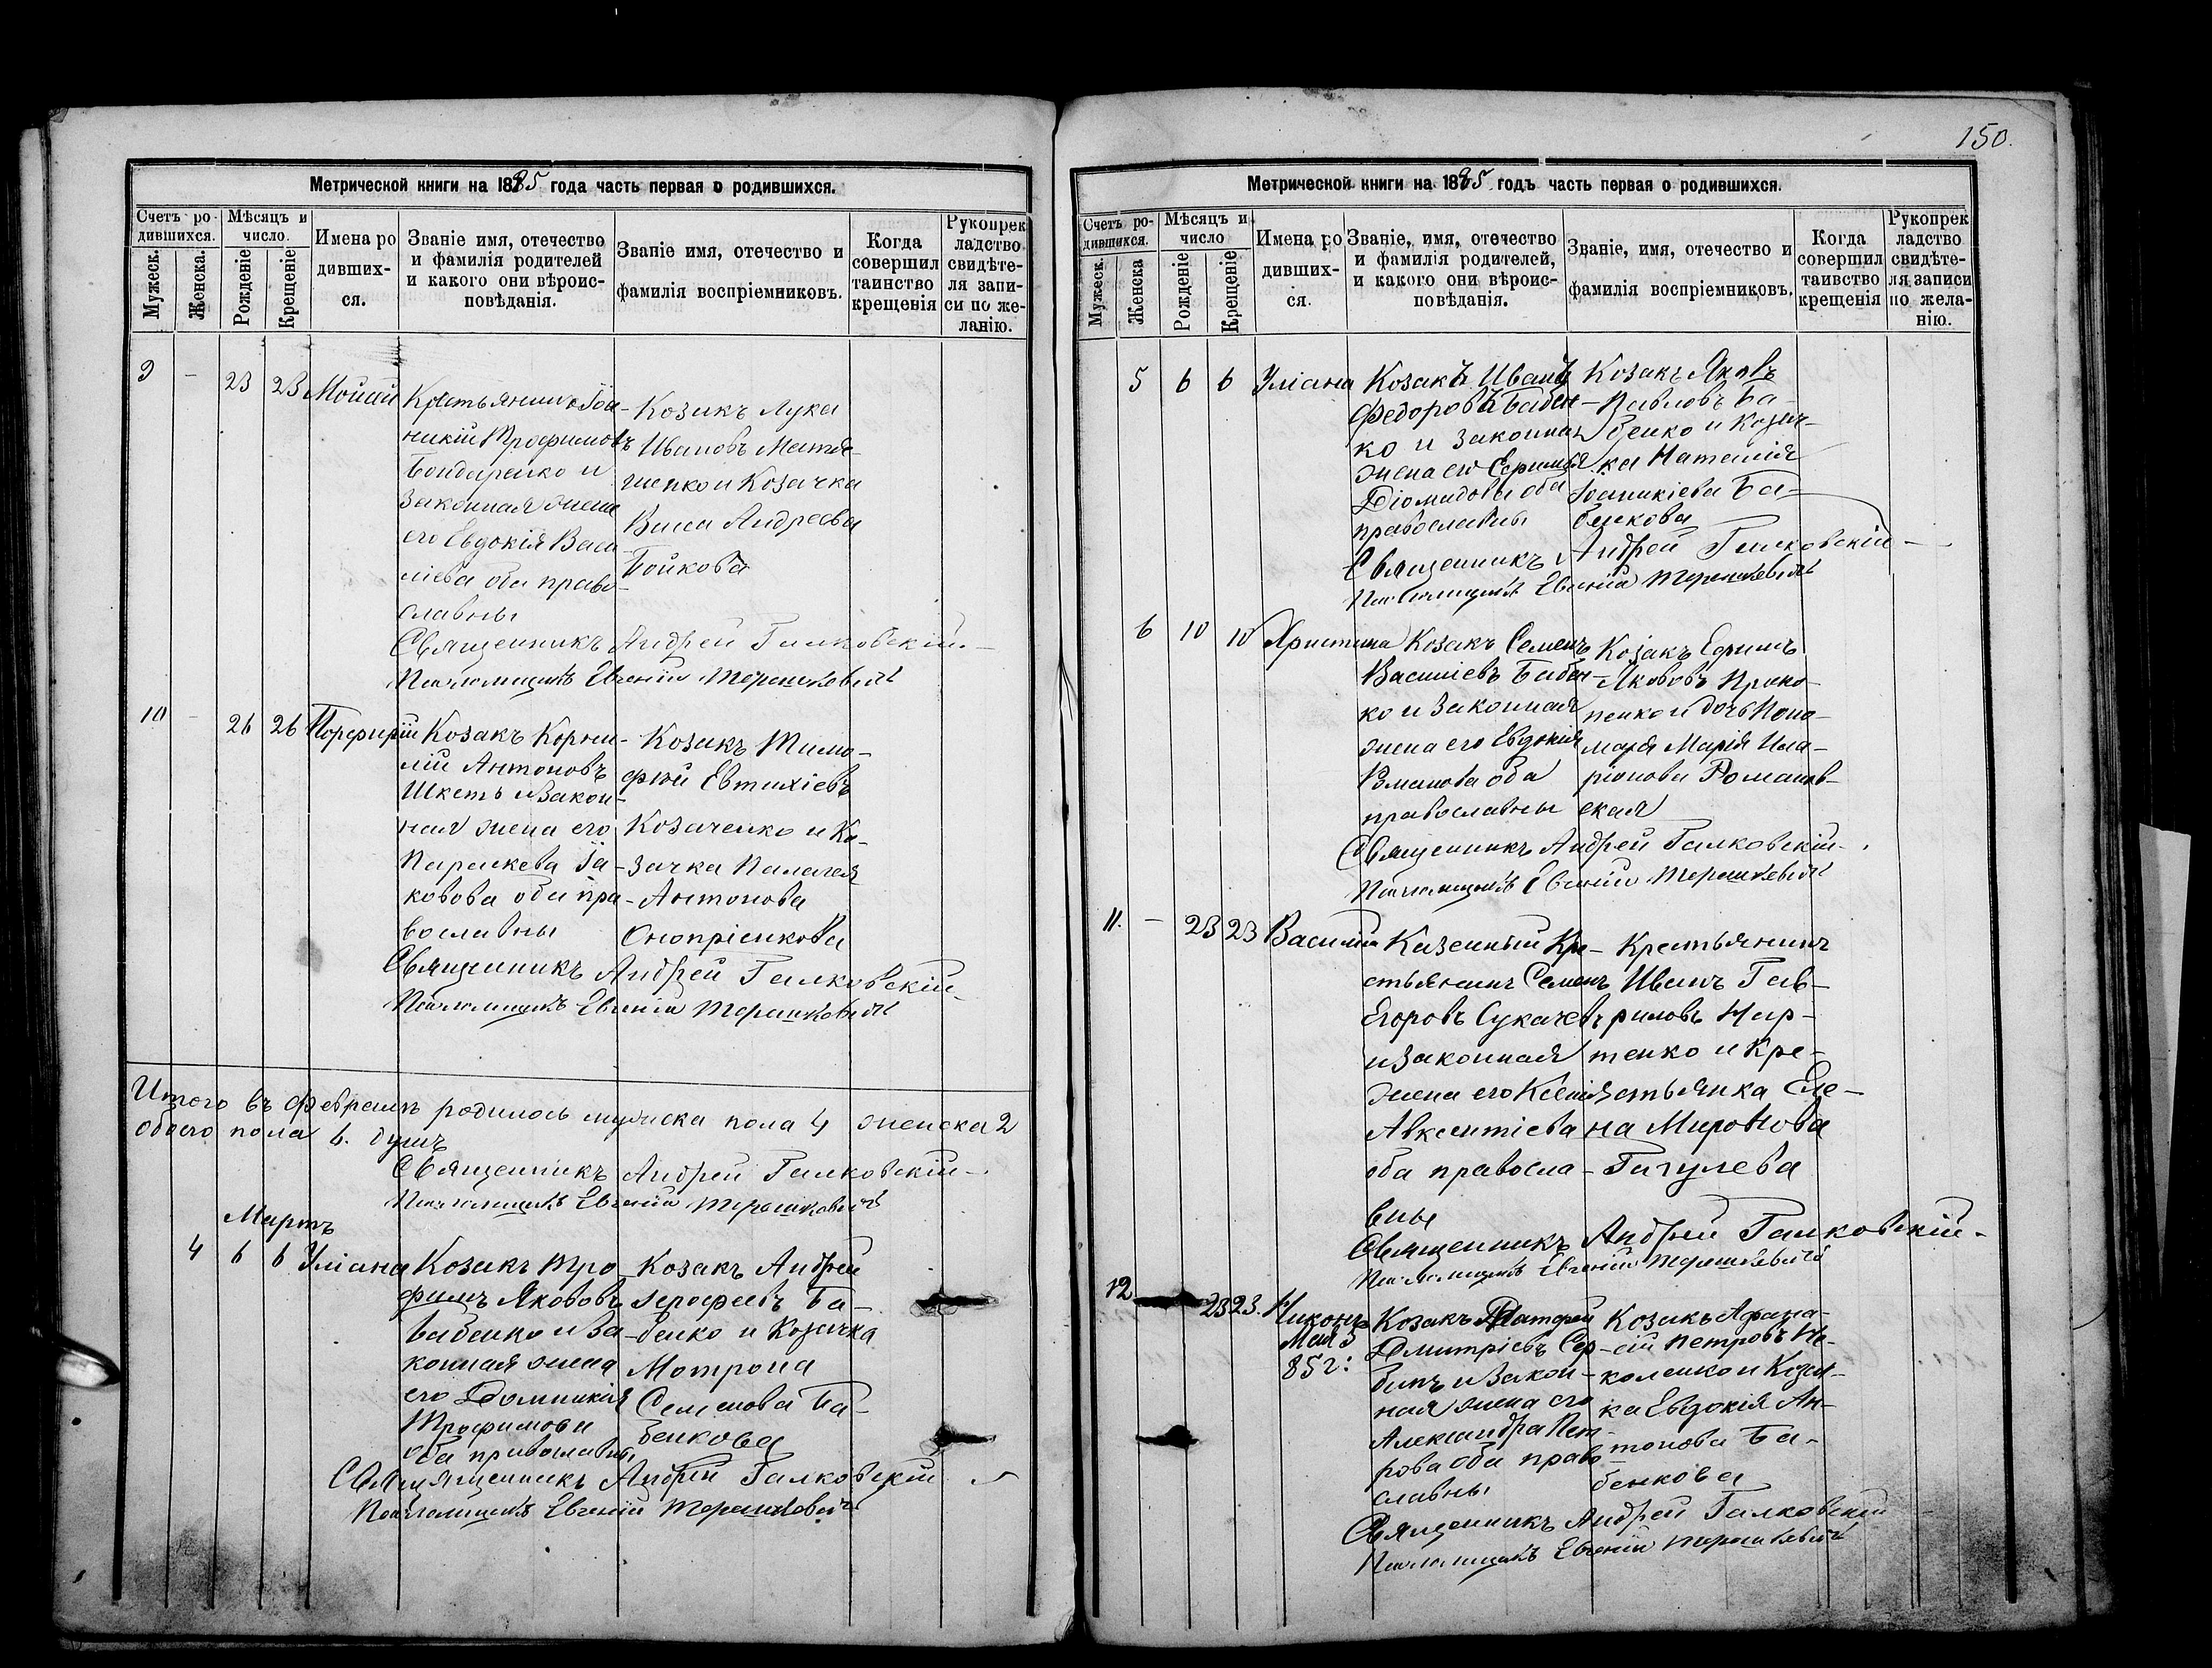 150.
Метрической книги на 1885 года часть первая о родившихся.
Счетъ ро-
дившихся.
Мѣсяцъ и
число.
Мужеск.
Женска.
Рожденіе
Крещеніе
Имена ро
дивших-
ся.
Званіе имя, отечество
и фамилія родителей
и какого они вѣроис-
повѣданія.
Званіе имя, отечество и
фамилія воспріемниковъ.
Когда
совершил
таинство
крещенія
Рукопрек
ладство
свидѣте-
ля запи-
си по же-
ланію.
9 - 23 23
Крестьянинъ Іоа-
никій Трофимовъ
Бондаренко и
законная жена
его Евдокія Васи-
ліева оба право-
славны
Козакъ Лука
Ивановъ
и Козачка
Васса Андреева
Бойкова
Священникъ Андрей Галковскій.
Псаломщикъ Евгеній Терешкевичъ
10 - 26 26 Порфирій
Козакъ Корни-
лій Антоновъ
Шкетъ и закон-
ная жена его
Параскева Іа-
ковова оба пра-
вославны
Козакъ Тимо-
фей Евтихіевъ
Козаченко и Ко-
зачка Палагея
Антонова
Оноприенкова
Священникъ Андрей Галковскій
Псаломщикъ Евгеній Терешкевичъ
Итого въ Февралѣ родилось мужеска пола 4 женска 2
обоего пола 6. душъ
Священникъ Андрей Галковскій
Псаломщикъ Евгеній Терешкевичъ
Мартъ
4 6 6 Уліана
Козакъ Тро-
фимъ Якововъ
Бабенко и за-
конная жена
его Домникія
Трофимова
оба православны
Козакъ Андрей
Ерофеевъ Ба-
бенко и Козачка
Мотрона
Семенова Ба-
бенкова
Священникъ Андрей Галковскій
Псаломщикъ Евгеній Терешкевичъ
Метрической книги на 1885 годъ часть первая о родившихся.
Счетъ ро-
дившихся.
Мѣсяцъ и
число
Мужеск.
Женска
Рожденіе
Крещеніе
Имена ро
дивших-
ся.
Званіе, имя, отечество
и фамилія родителей,
и какого они вѣроис-
повѣданія.
Званіе, имя, отечество и
фамилія воспріемниковъ.
Когда
совершил
таивство
крещенія
Рукопрек
ладство
свидѣте-
ля записи
по жела-
нію.
5 6 6 Уліана
Козакъ Иванъ
Федоровъ Бабен-
ко и законная
жена его Ефимія
Діомидова оба
православны
Козакъ Яковъ
Павловъ Ба-
бенко и Козач-
ка Наталія
Іоаникіева Ба-
бенкова
Священникъ Андрей Галковскій
Псаломщикъ Евгеній Терешкевичъ
6 10 10 Христина
Козакъ Семенъ
Василіевъ Бабен-
ко и законная
жена его Евдокія
оба
православны
Козакъ Ефимъ
Якововъ Проко-
пенко и дочь Поно-
маря Марія Ила-
ріонова Романов-
ская
Священникъ Андрей Галковскій
Псаломщикъ Евгеній Терешкевичъ
11. - 23 23 Василій
Казенный Кре-
стьянинъ Семенъ
Егоровъ Сукачевъ
и законная
жена его Ксенія
Авксентіева
оба правосла-
вны
Крестьянинъ
Иванъ Гав-
риловъ Нар-
тенко и Кре-
стьянка Еле-
на Миронова
Гагулева
Священникъ Андрей Галковскій
Псаломщикъ Евгеній Терешкевичъ
12 23 23. Никонъ
Мая 3
85 г:
Козакъ Матфей
Дмитріевъ Сер-
бинъ и закон-
ная жена его
Александра Пет-
рова оба право-
славны
Козакъ Афана-
сій Петровъ Ни-
коленко и Козач-
ка Евдокія Ан-
тонова Ба-
бенкова
Священникъ Андрей Галковскій
Псаломщикъ Евгеній Терешкевичъ